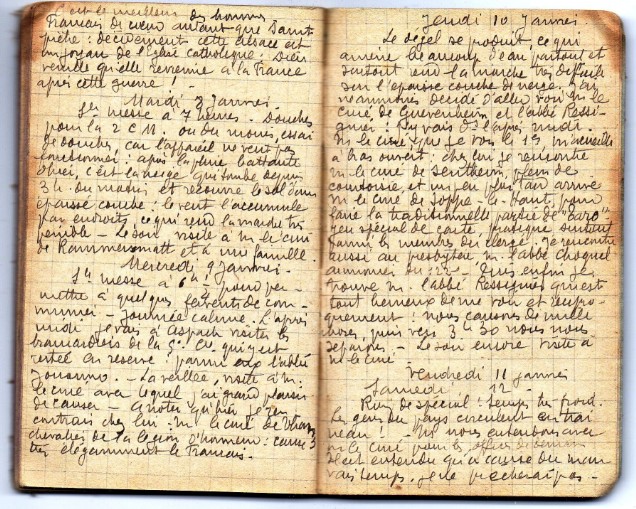 C'est le meilleur des hommes
Français de cœur autant que Saint
prêtre : décidément cette Alsace est
un joyau de l'Église catholique. Dieu
veuille qu'elle revienne à la France
après cette guerre !
Mardi 8 Janvier
Ste messe à 7 heures. Douches
pour la 2e C.M. ou du moins, essai
de douches, car l'appareil ne veut pas
fonctionner : après la pluie battante
d'hier, c'est la neige qui tombe depuis
3 h. du matin et recouvre le sol d'une
épaisse couche : le vent l'accumule
par endroits, ce qui rend la marche très
pénible - Le soir visite à M. le curé
de Rammersmatt et à sa famille.
Mercredi 9 Janvier.
Ste messe à 6h pour per-
mettre à quelques fervents de com-
munier - Journée calme. L'après
midi je vais à Aspach visiter les
brancardiers de la 3e Cie. qui y est
restée en réserve : parmi eux l'abbé
- La veillée, visite à M.
le curé avec lequel j'ai grand plaisir
de causer - A noter qu'hier je ren
contrais chez lui M. le curé de
chevalier de la légion d'honneur : cause
très élégamment le Français.
Jeudi 10 Janvier
Le dégel se produit, ce qui
amène beaucoup d'eau partout et
surtout rend la marche très difficile
sur l'épaisse couche de neige. J'ai
néanmoins décidé d'aller voir M. le
curé de Guewenheim et l'abbé Ressi-
guier : j'y vais l'après midi.
M. le curé que je vois le 1er m'accueille
à bras ouvert : chez lui je rencontre
M. le curé de Sentheim, plein de
courtoisie, et un peu plus tard arrive
M. le curé de Soppe-le-Haut, pour
faire la traditionnelle partie de
jeu spécial de carte, pratiqué surtout
parmi les membres du clergé. Je rencontre
aussi au presbytère M. l'abbé Choquel
aumônier du 122 - Puis enfin je
trouve M. l'abbé Ressiguier qui est
tout heureux de me voir et récipro-
quement : nous causons de mille
choses, puis vers 3h 30 nous nous
séparons - Le soir encore visite à
M. le curé -
Vendredi 11 janvier
Samedi 12 -
Rien de spécial : temps très froid.
Les gens du pays circulent en traî
neau ! - Nous nous entendons avec
M. le curé pour les offices de demain
Il est entendu qu'à cause du mau
vais temps, je ne prêcherai pas -